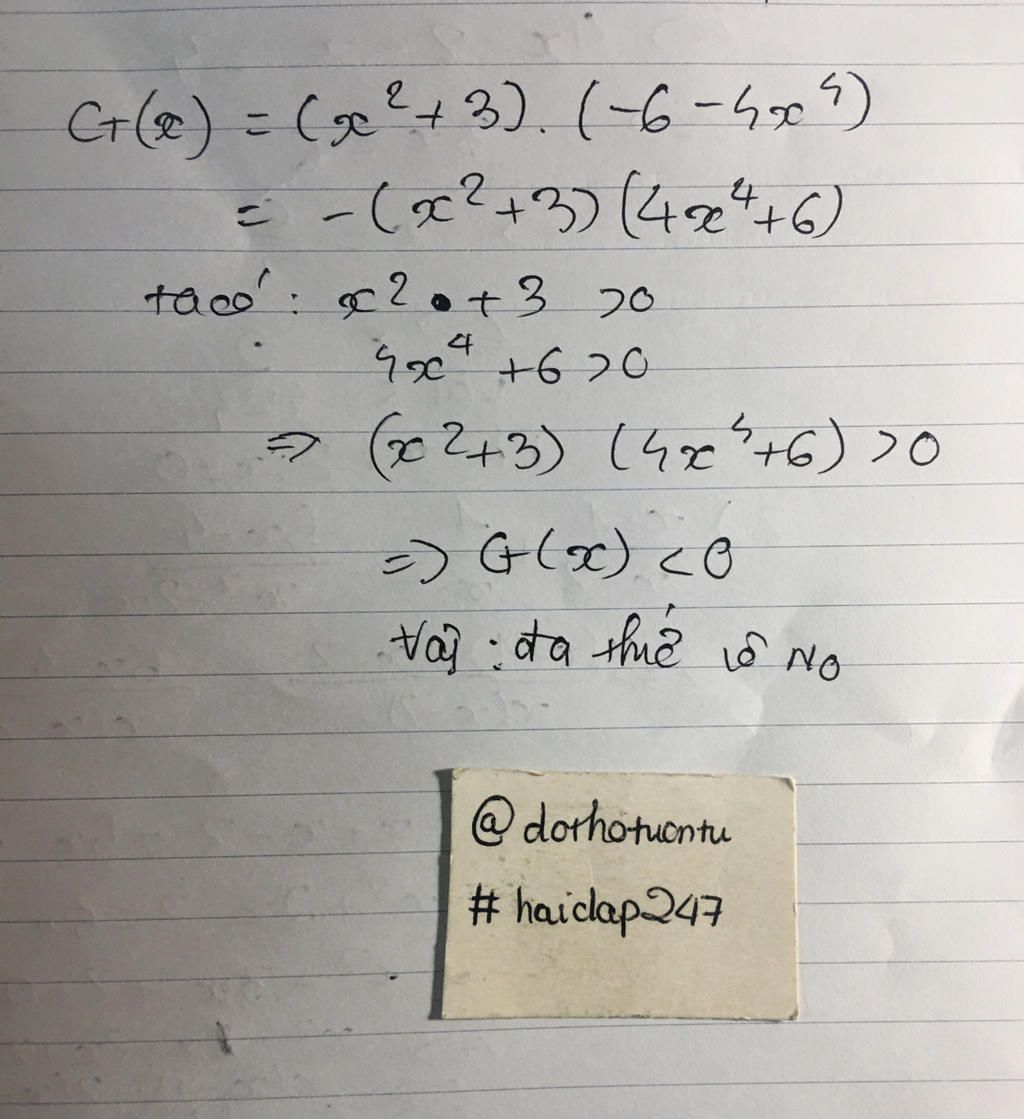 G(x) = (x²+3).(-6-4x⁴)
= -(x²+3)(4x⁴+6)
ta có: x² + 3 >0
4x⁴ +6 >0
=> (x²+3) (4x⁴+6) >0
=> G(x) <0
Vậy: đa thức vô No
@dorhotuontu
# haidap247